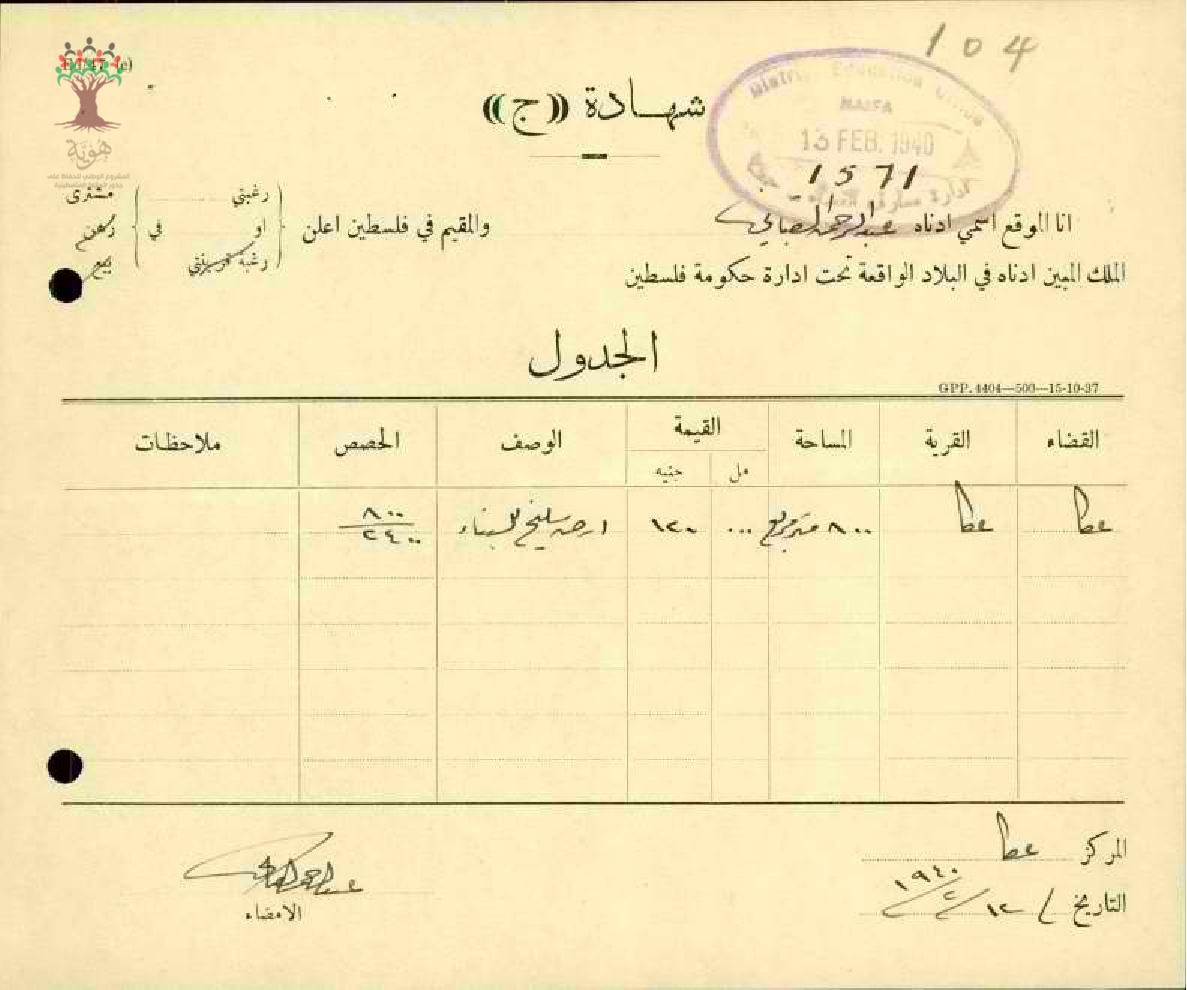 104
District Education Office
HAIFA
13 FEB. 1940
1571
هوية
شهـادة ((ج))
انا الموقع اسمي ادناه عبد الرحمن والمقيم في فلسطين اعلن { رغبتي او رغبة قرينتي } في { مشترى رهن بيع }
الملك المبين ادناه في البلاد الواقعة تحت ادارة حكومة فلسطين
الجدول
GPP. 4404—500—15-10-37
القضاء القرية المساحة القيمة الوصف الحصص ملاحظات
مل جنيه
عكا عكا ٨٠٠ متر مربع ٠٠٠ ١٢٠ ارض سليخ للبناء ٨٠٠/٢٤٠٠
المركز عكا
التاريخ ١٢/٢/١٩٤٠
الامضاء